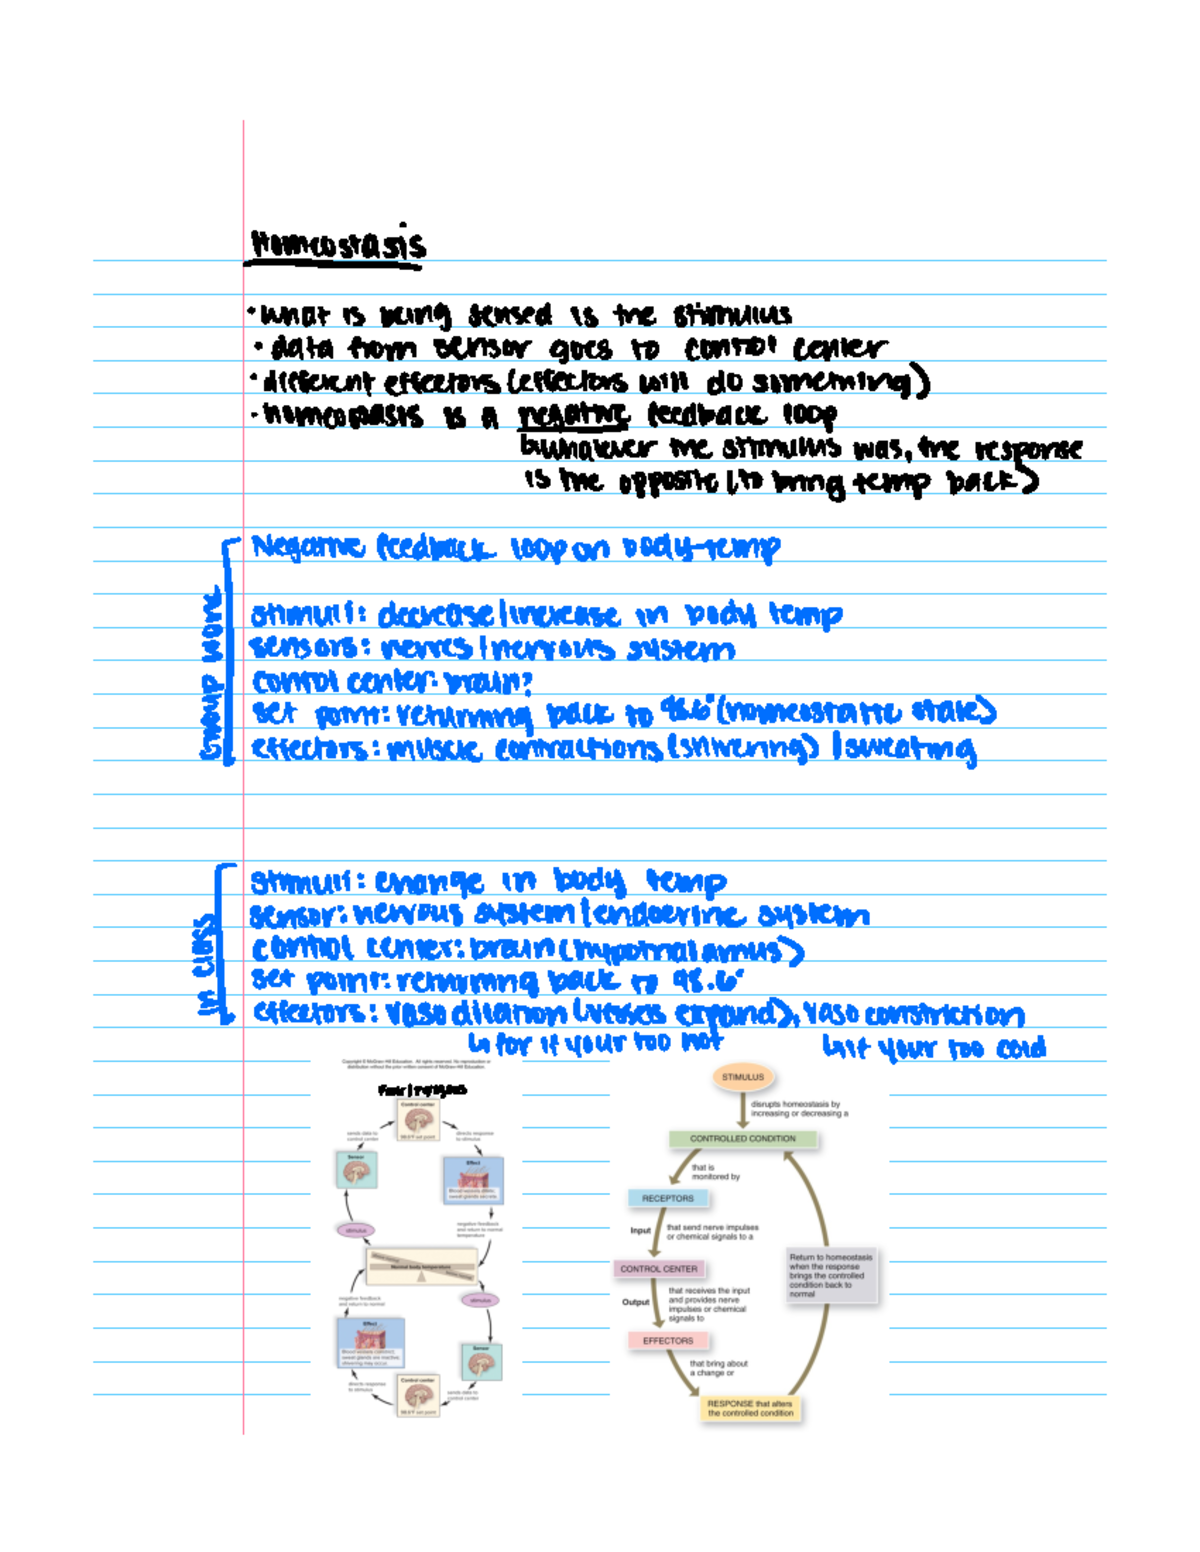 Homeostasis
• what is being sensed is the stimulus
• data from sensor goes to control center
• different effectors (effectors will do something)
• homeostasis is a negative feedback loop
whatever the stimulus was, the response
is the opposite (to bring temp back)
Group work
Negative feedback loop on body temp
stimuli: decrease/increase in body temp
sensors: nerves/nervous system
control center: brain?
set point: returning back to 98.6° (homeostatic state)
effectors: muscle contractions (shivering) / sweating
In class
stimuli: change in body temp
sensor: nervous system/endocrine system
control center: brain (hypothalamus)
set point: returning back to 98.6°
effectors: vasodilation (vesses expand), vaso constriction
for if your too hot
if your too cold
Copyright © McGraw-Hill Education. All rights reserved. No reproduction or
distribution without the prior written consent of McGraw-Hill Education.
Control center
98.6°F set point
sends data to
control center
directs response
to stimulus
Sensor
Effect
Blood vessels dilate;
sweat glands secrete.
stimulus
negative feedback
and return to normal
temperature
Normal body temperature
negative feedback
and return to normal
stimulus
Effect
Blood vessels constrict;
sweat glands are inactive;
shivering may occur.
Sensor
directs response
to stimulus
Control center
98.6°F set point
sends data to
control center
STIMULUS
disrupts homeostasis by
increasing or decreasing a
CONTROLLED CONDITION
that is
monitored by
RECEPTORS
Input
that send nerve impulses
or chemical signals to a
CONTROL CENTER
Output
that receives the input
and provides nerve
impulses or chemical
signals to
EFFECTORS
that bring about
a change or
RESPONSE that alters
the controlled condition
Return to homeostasis
when the response
brings the controlled
condition back to
normal